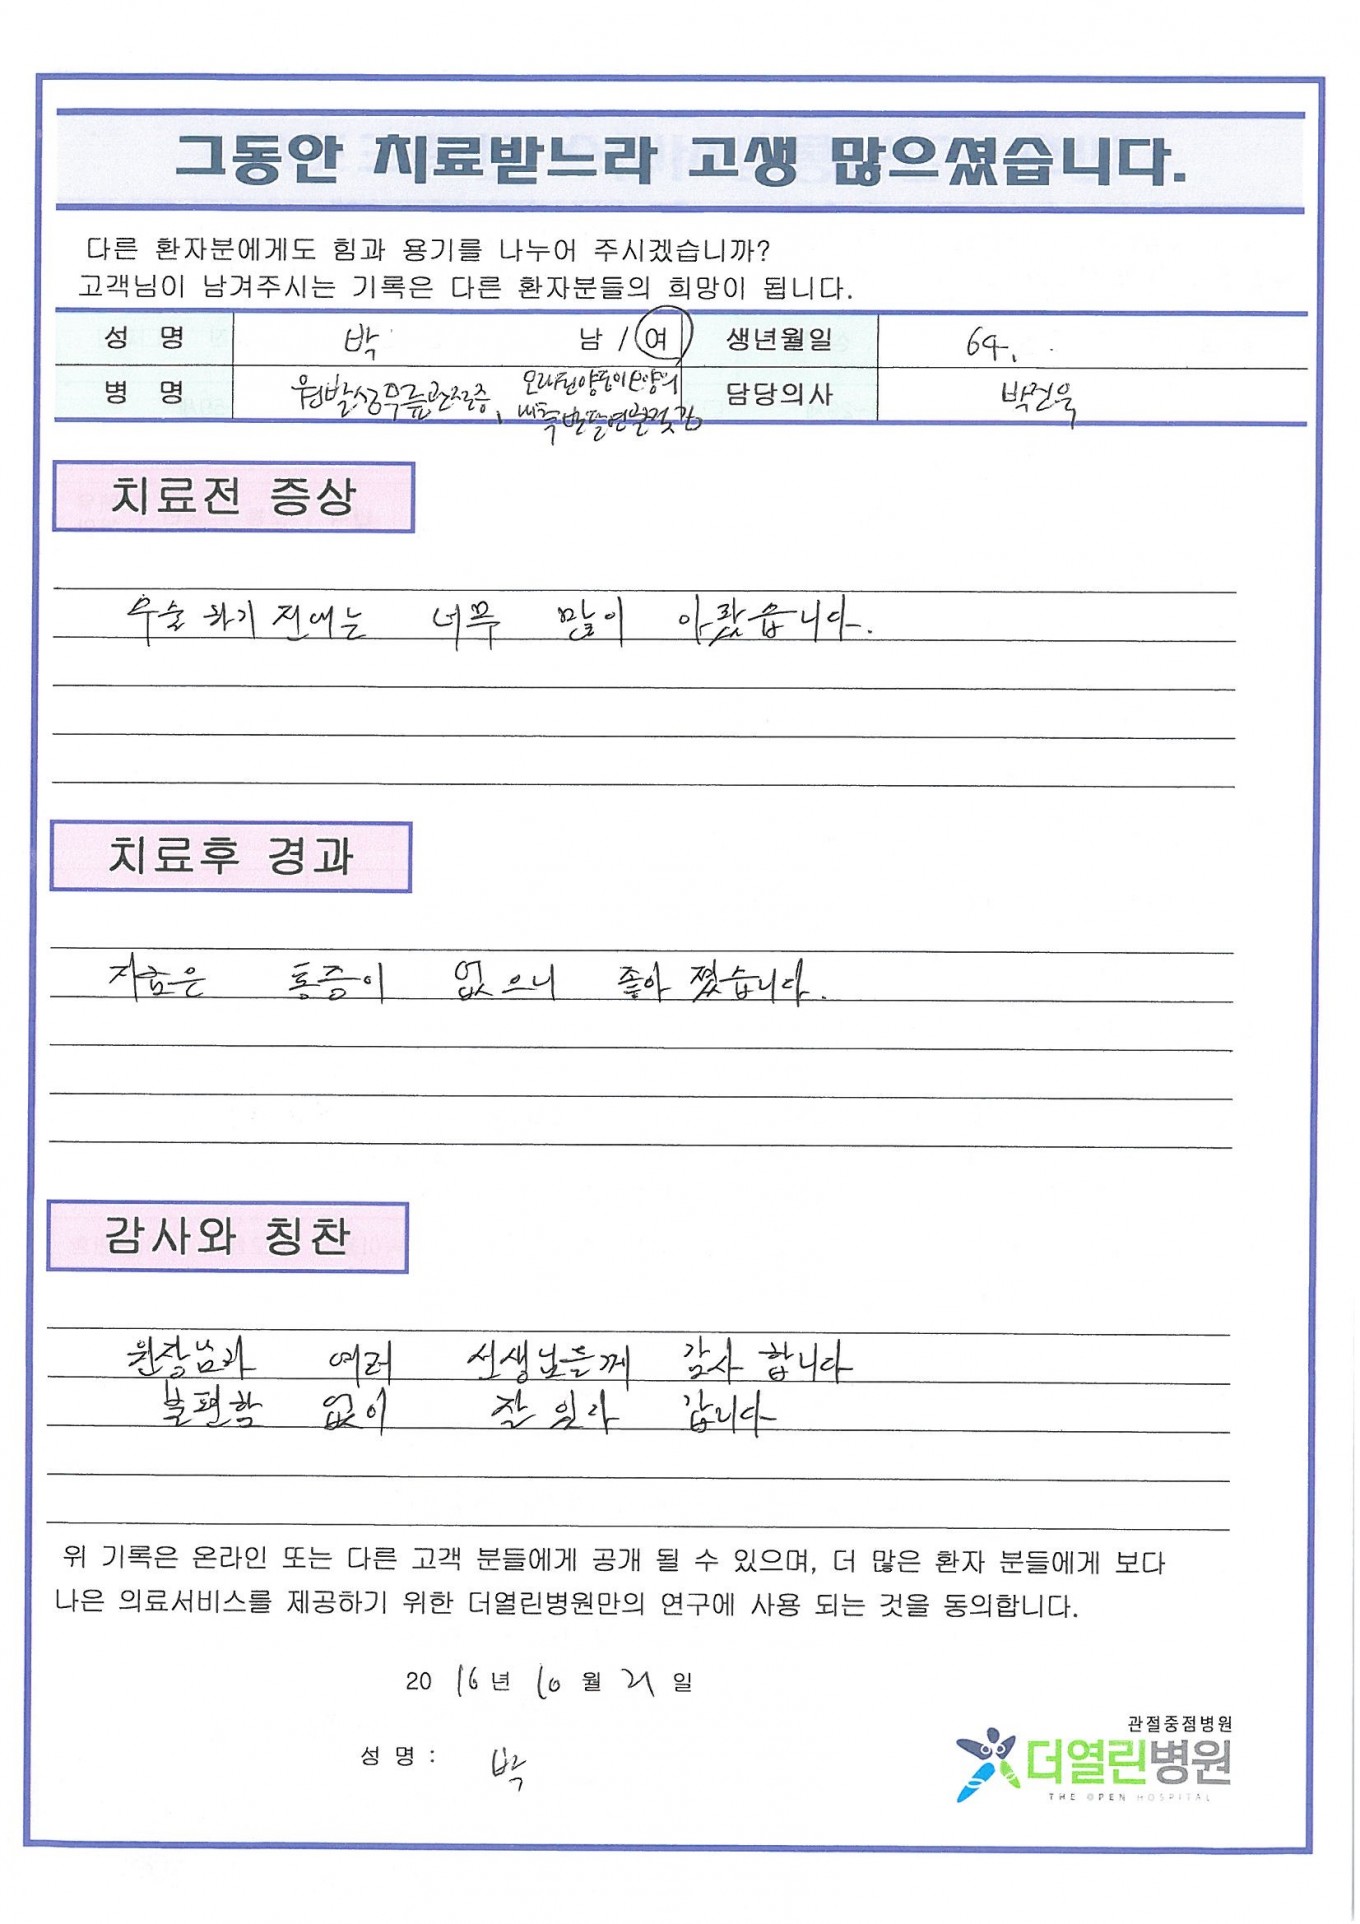 그동안 치료받느라 고생 많으셨습니다.
다른 환자분에게도 힘과 용기를 나누어 주시겠습니까?
고객님이 남겨주시는 기록은 다른 환자분들의 희망이 됩니다.
성 명 박 남 / 여 생년월일 64.
병 명 원발성무릎관절증, 오래된양동이모양의 담당의사 박건욱
내측반달연골찢김
치료전 증상
수술 하기 전에는 너무 많이 아팠습니다.
치료후 경과
지금은 통증이 없으니 좋아 졌습니다.
감사와 칭찬
원장님과 여러 선생님들께 감사 합니다
불편함 없이 잘 있다 갑니다
위 기록은 온라인 또는 다른 고객 분들에게 공개 될 수 있으며, 더 많은 환자 분들에게 보다
나은 의료서비스를 제공하기 위한 더열린병원만의 연구에 사용 되는 것을 동의합니다.
20 16 년 10 월 21 일
성 명 : 박
관절중점병원
더열린병원
THE OPEN HOSPITAL